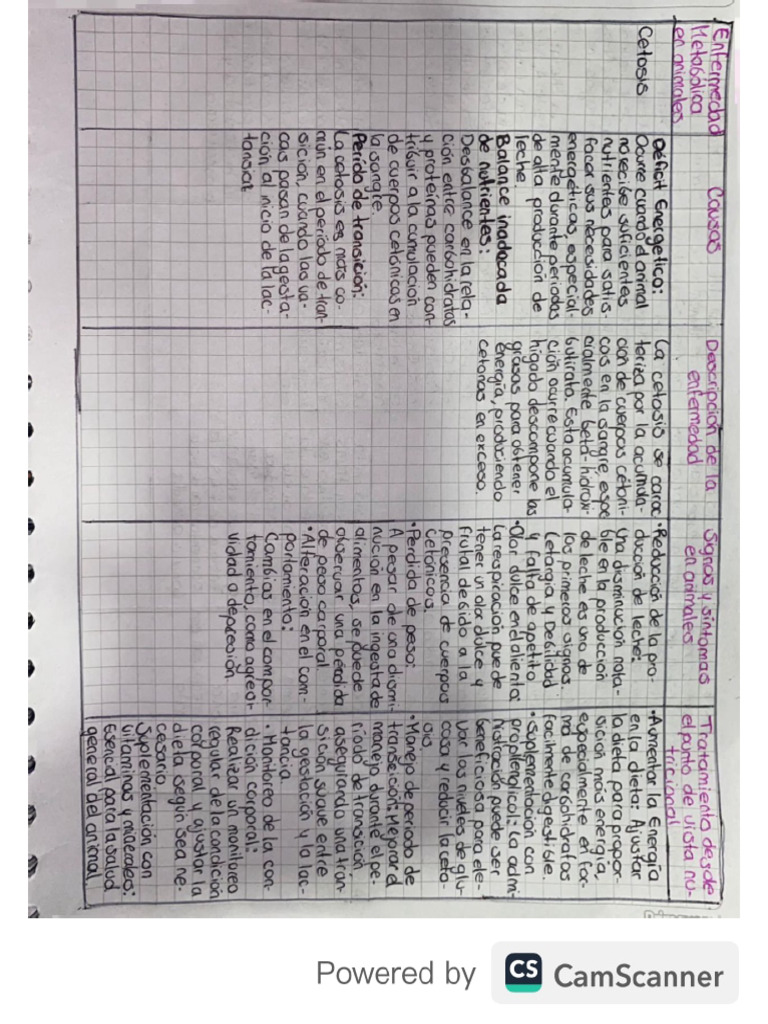 Enfermedad
Metabólica
en animales
Causas
Descripción de la
enfermedad
Signos y síntomas
en animales
Tratamiento desde
el punto de vista nu-
tricional
Cetosis
Déficit Energetico:
Ocurre cuando el animal
no recibe suficientes
nutrientes para satis-
facer sus necesidades
energéticas, especial-
mente durante periodos
de alta producción de
leche.
Balance inadocada
de nutrientes:
Desbalance en la rela-
ción entre carbohidratos
y proteínas pueden con-
tribuir a la cumulación
de cuerpos cetónicas en
la sangre.
Perido de transición:
La cetosis es más co-
mún en el período de tran-
sición, cuando las va-
cas pasan de la gesta-
ción al inicio de la lac-
tancia.
La cetosis se carac
teriza por la acumula-
ción de cuerpos cétoni-
cos en la sangre, espe
cialmente beta-hidroxi-
butirato. Esta acumula-
ción ocurre cuando el
hígado descompone las
grasas para obtener
energía, produciendo
cetonas en exceso.
•Reducción de la pro-
ducción de leche:
Una disminución nota-
ble en la producción
de leche es uno de
los primeros signos.
Letargia y Debilidad
y falta de apetito
•Olor dulce en el aliento:
La respiración puede
tener un olor dulce y
frutal debido a la
presencia de cuerpos
cetonicos.
•Perdida de peso:
A pesar de una dismi-
nución en la ingesta de
alimentos, se puede
observar una pérdida
de peso corporal.
•Alteración en el com-
portamiento:
Cambios en el compor-
tamiento, como agresi-
vidad o depresión
•Aumentar la Energía
en la dieta: Ajustar
la dieta para propor-
sición más energía,
especialmente en for-
ma de carbohidratos
facilmente digestible.
•Suplementación con
propilenglicol: La admi-
nistración puede ser
beneficiosa para ele-
var los niveles de glu-
cosa y reducir la ceto-
sis.
•Manejo de periodo de
transeición: Mejorar el
manejo durante el pe-
ríodo de transición
asegurando una tran-
sición suave entre
la gestación y la lac-
tancia.
•Monitoreo de la con-
dición corporal:
Realizar un monitoreo
regular de la condición
corporal y ajustar la
dieta según sea ne-
cesario
Suplementación con
vitaminas y minerales:
Esencial para la salud
general del animal.
Powered by CS CamScanner